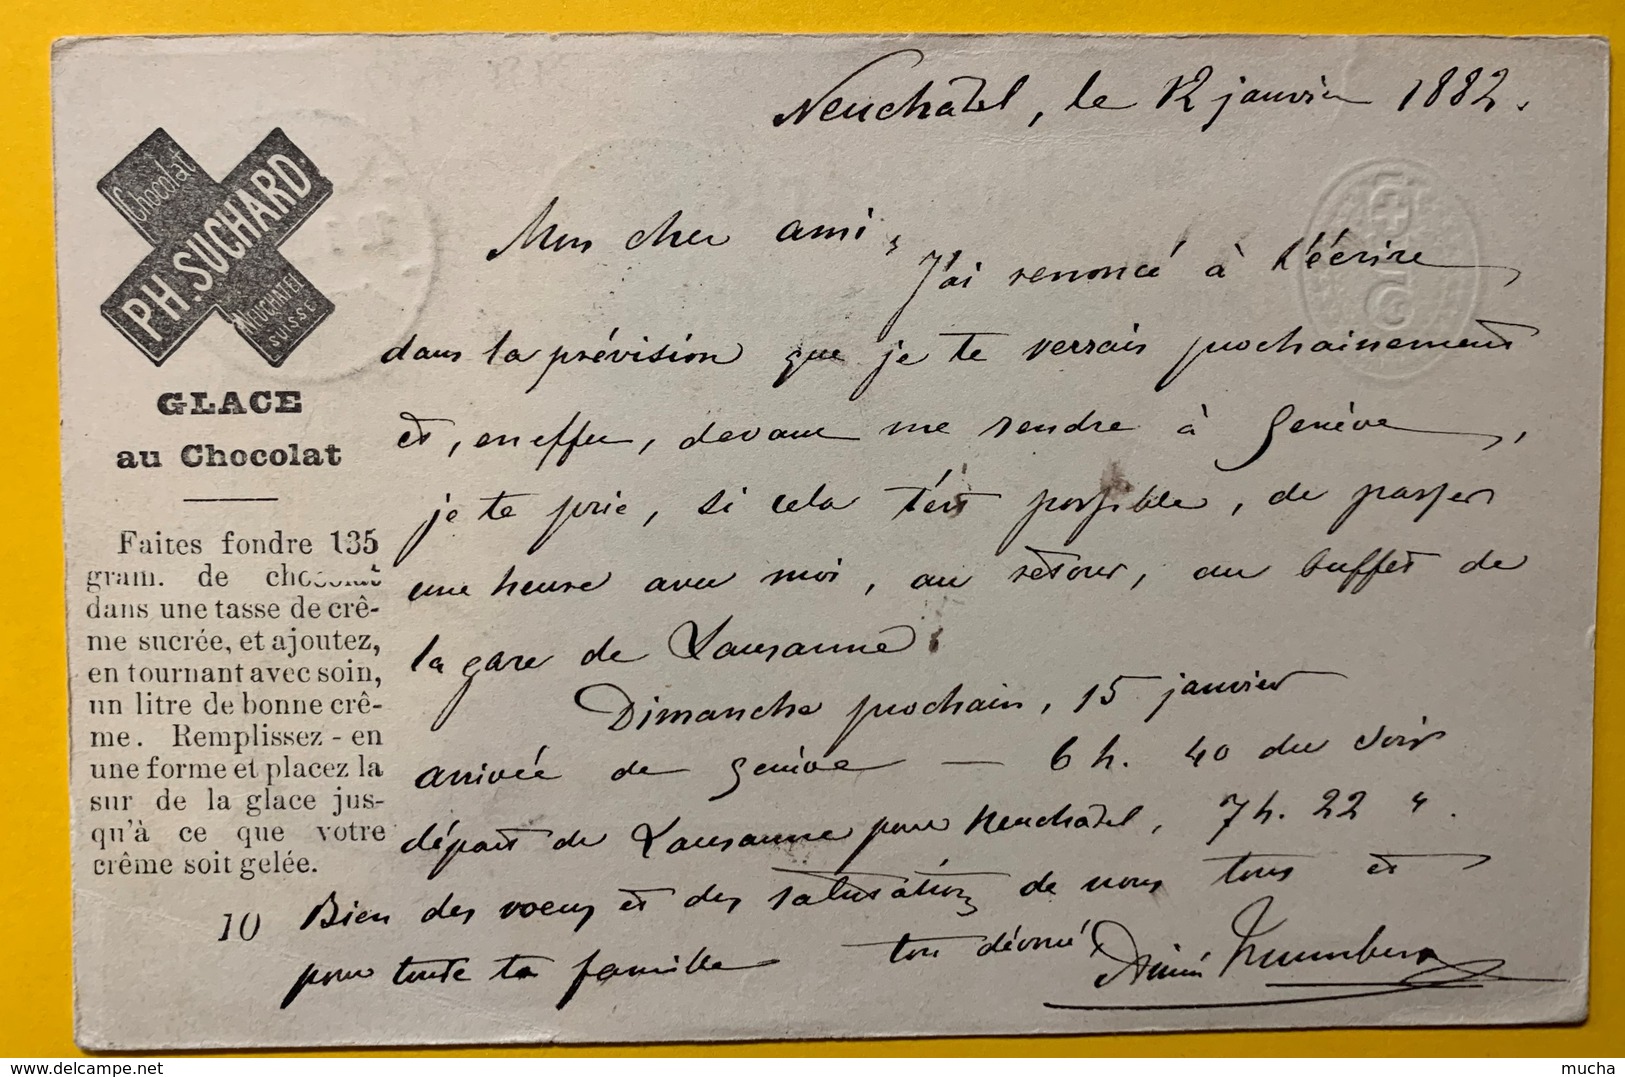 Neuchâtel, le 12 janvier 1882.
Chocolat
PH. SUCHARD
NEUCHATEL
SUISSE
GLACE
au Chocolat
Faites fondre 135
gram. de chocolat
dans une tasse de crê-
me sucrée, et ajoutez,
en tournant avec soin,
un litre de bonne crê-
me. Remplissez-en
une forme et placez la
sur de la glace jus-
qu'à ce que votre
crême soit gelée.
10
Mon cher ami,
J'ai renoncé à t'écrire
dans la prévision que je te verrais prochainement
et, en effet, devant me rendre à Genève,
je te prie, si cela t'est possible, de passer
une heure avec moi, au retour, au buffet de
la gare de Lausanne.
Dimanche prochain, 15 janvier
arrivée de Genève — 6 h. 40 du soir
départ de Lausanne pour Neuchâtel, 7 h. 22 "
Bien des voeux et des salutations de nous tous et
pour toute ta famille ton dévoué
mucha